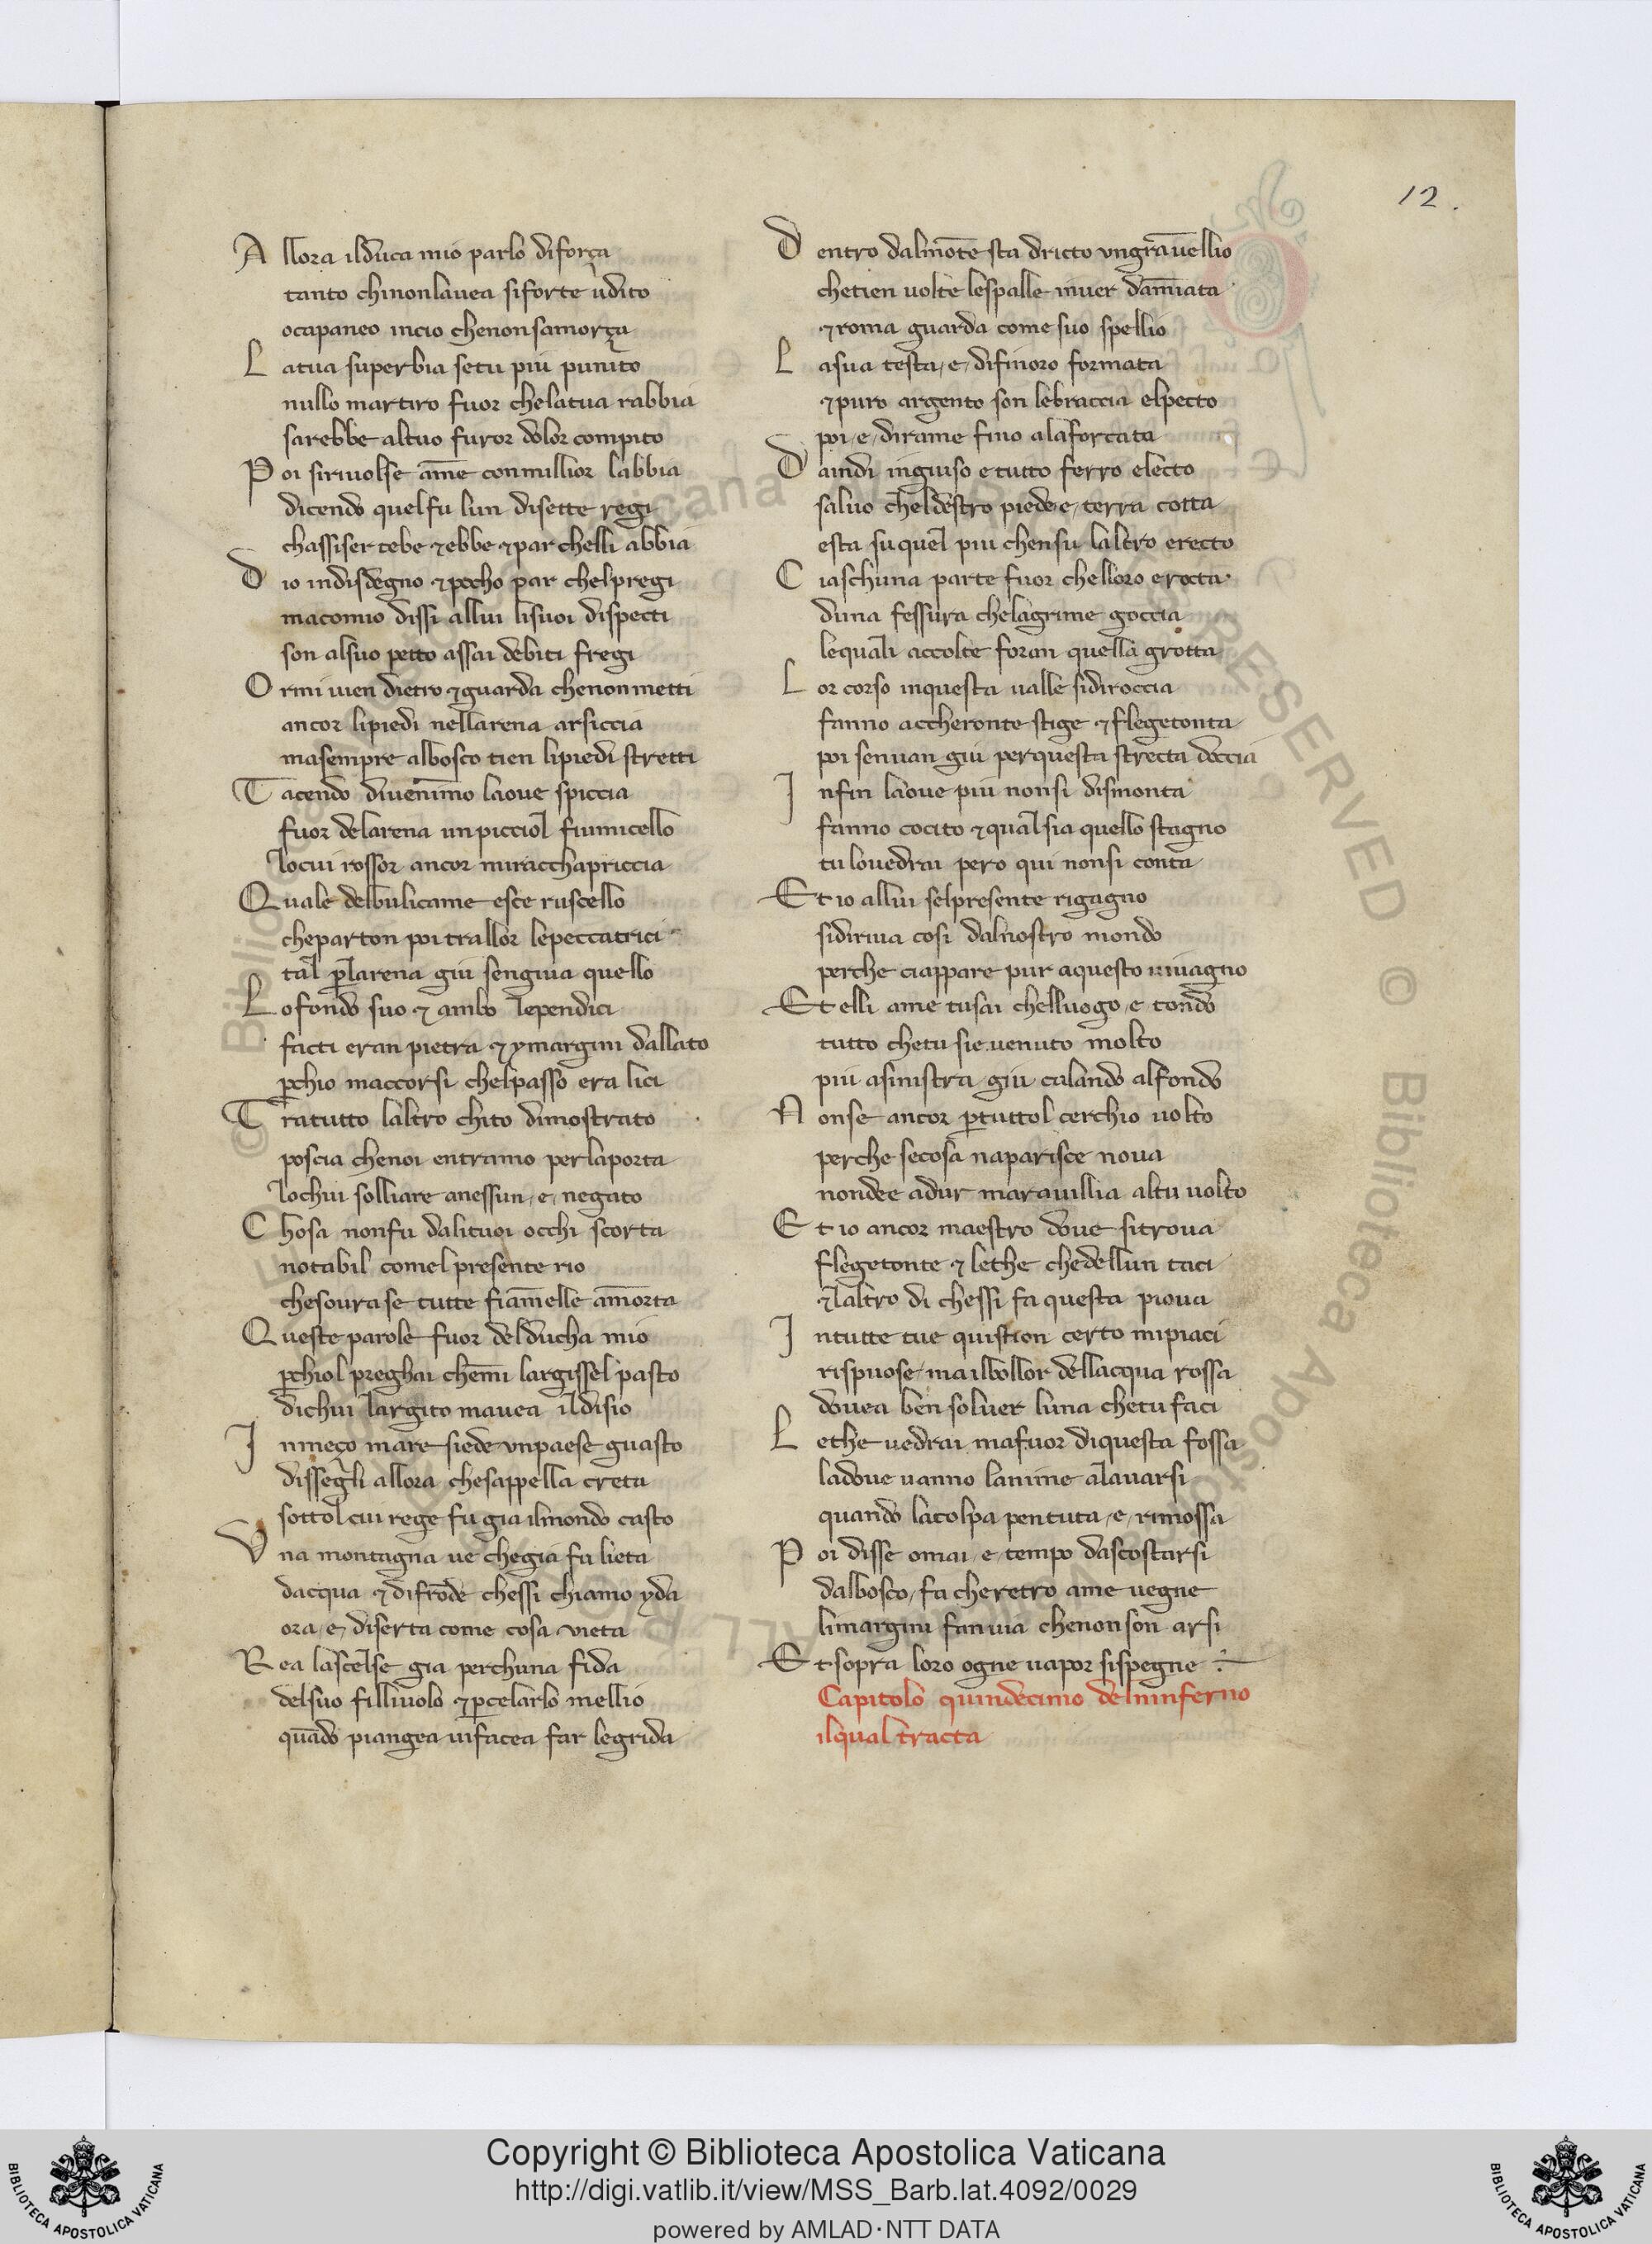 12.
Allora ilduca mio parlo diforça
tanto chinonlauea siforte udito
ocapaneo incio chenonsamorça
Latua superbia setu piu punito
nullo martiro fuor chelatua rabbia
sarebbe altuo furor dolor compito
Poi siriuolse am̄e conmillior labbia
dicendo quelfu lun disette regi
chassiser tebe ⁊ebbe ⁊par chelli abbia
Dio indisdegno ⁊pocho par chelpregi
macomio dissi allui lisuoi dispecti
son alsuo petto assai debiti fregi
Ormi uien dietro ⁊guarda chenonmetti
ancor lipiedi nellarena arsiccia
masempre albosco tien lipiedi stretti
Tacendo diuenim̄o laoue spiccia
fuor delarena unpicciol fiumicello
locui rossor ancor miracchapriccia
Quale delbulicame esce ruscello
cheparton poi trallor lepeccatrici
tal ꝑlarena giu sengiua quello
Lofondo suo ⁊ ambo lependici
facti eran pietra ⁊ ymargini dallato
ꝑchio maccorsi chelpasso era lici
Tratutto laltro chito dimostrato
poscia chenoi entramo perlaporta
lochui solliare anessun e negato
Chosa nonfu dalituoi occhi scorta
notabil comel presente rio
chesoura se tutte fiam̄elle am̄orta
Queste parole fuor delducha mio
ꝑchiol preghai chem̄i largissel pasto
dichui largito mauea ildisio
Inmeço mare siede unpaese guasto
dissegli allora chesappella creta
sottol cui rege fu gia ilmondo casto
Una montagna ue chegia fu lieta
dacqua ⁊ difrōde chessi chiamo yda
ora e diserta come cosa vieta
Rea lascelse gia perchuna fida
delsuo filliuolo ⁊ꝑcelarlo mellio
quādo piangea uifacea far legrida
Dentro dalmōte sta dricto ungrāuellio
chetien uolte lespalle inuer dam̄iata
⁊roma guarda come suo spellio
Lasua testa e difinoro formata
⁊puro argento son lebraccia elpecto
poi e dirame fino alaforcata
Daindi ingiuso e tutto ferro electo
saluo cheldestro piede e terra cotta
esta suquel piu chensu laltro erecto
Ciaschuna parte fuor chelloro erocta
duna fessura chelagrime goccia
lequali accolte foran quella grotta
Lor corso inquesta ualle sidiroccia
fanno accheronte stige ⁊ flegetonta
poi senuan giu perquesta strecta doccia
Infin laoue piu nonsi dismonta
fanno cocito ⁊qual sia quello stagno
tu louedrai pero qui nonsi conta
Et io allui selpresente rigagno
sidiriua cosi dalnostro mondo
perche ciappare pur aquesto uiuagno
Et elli ame tusai chelluogo e tondo
tutto chetu sie uenuto molto
piu asinistra giu calando alfondo
Nonse ancor ꝑtuttol cerchio uolto
perche secosa naparisce noua
nondee adur marauillia altu uolto
Et io ancor maestro doue sitroua
flegetonte ⁊ lethe chedellun taci
⁊laltro di chessi fa questa piova
Intutte tue quistion certo mipiaci
rispuose mailbollor dellacqua rossa
douea ben soluer luna chetu faci
Lethe uedrai mafuor diquesta fossa
ladoue uanno lanime alauarsi
quando lacolpa pentuta e rimossa
Poi disse omai e tempo dascostarsi
dalbosco fa cheretro ame uegne
limargini fan uia chenon son arsi
Et sopra loro ogne uapor sispegne
Capitolo quindecimo delninferno
ilqual tracta
Copyright © Biblioteca Apostolica Vaticana
http://digi.vatlib.it/view/MSS_Barb.lat.4092/0029
powered by AMLAD·NTT DATA
BIBLIOTECA APOSTOLICA VATICANA
BIBLIOTECA APOSTOLICA VATICANA